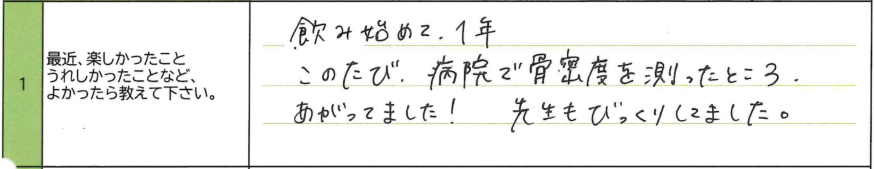 1
最近、楽しかったこと
うれしかったことなど、
よかったら教えて下さい。
飲み始めて、1年
このたび、病院で骨密度を測ったところ、
あがってました！ 先生もびっくりしてました。